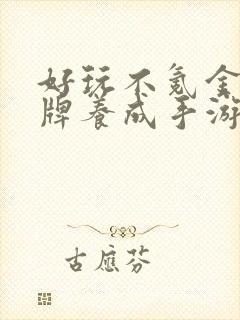 好玩不氪金
牌养成手游
古应芬